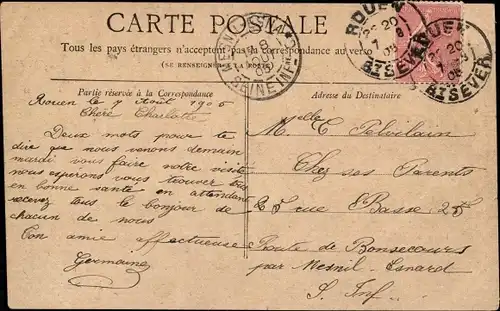 CARTE POSTALE
Tous les pays étrangers n'acceptent pas la correspondance au verso
(SE RENSEIGNER A LA POSTE)
ROUEN
ST SEVER
ROUEN
ST SEVER
Partie réservée à la Correspondance
Rouen le 7 Août 1905
Chère Charlotte
Deux mots pour te
dire que nous venons demain
mardi vous faire notre visite
nous espérons vous trouver tous
en bonne santé en attendant
recevez tous le bonjour de
chacun de nous
Ton amie affectueuse
Germaine
Adresse du Destinataire
Melle C. Pelvilain
Chez ses Parents
25 rue Basse 25
Route de Bonsecours
par Mesnil-Esnard
S. Inf.